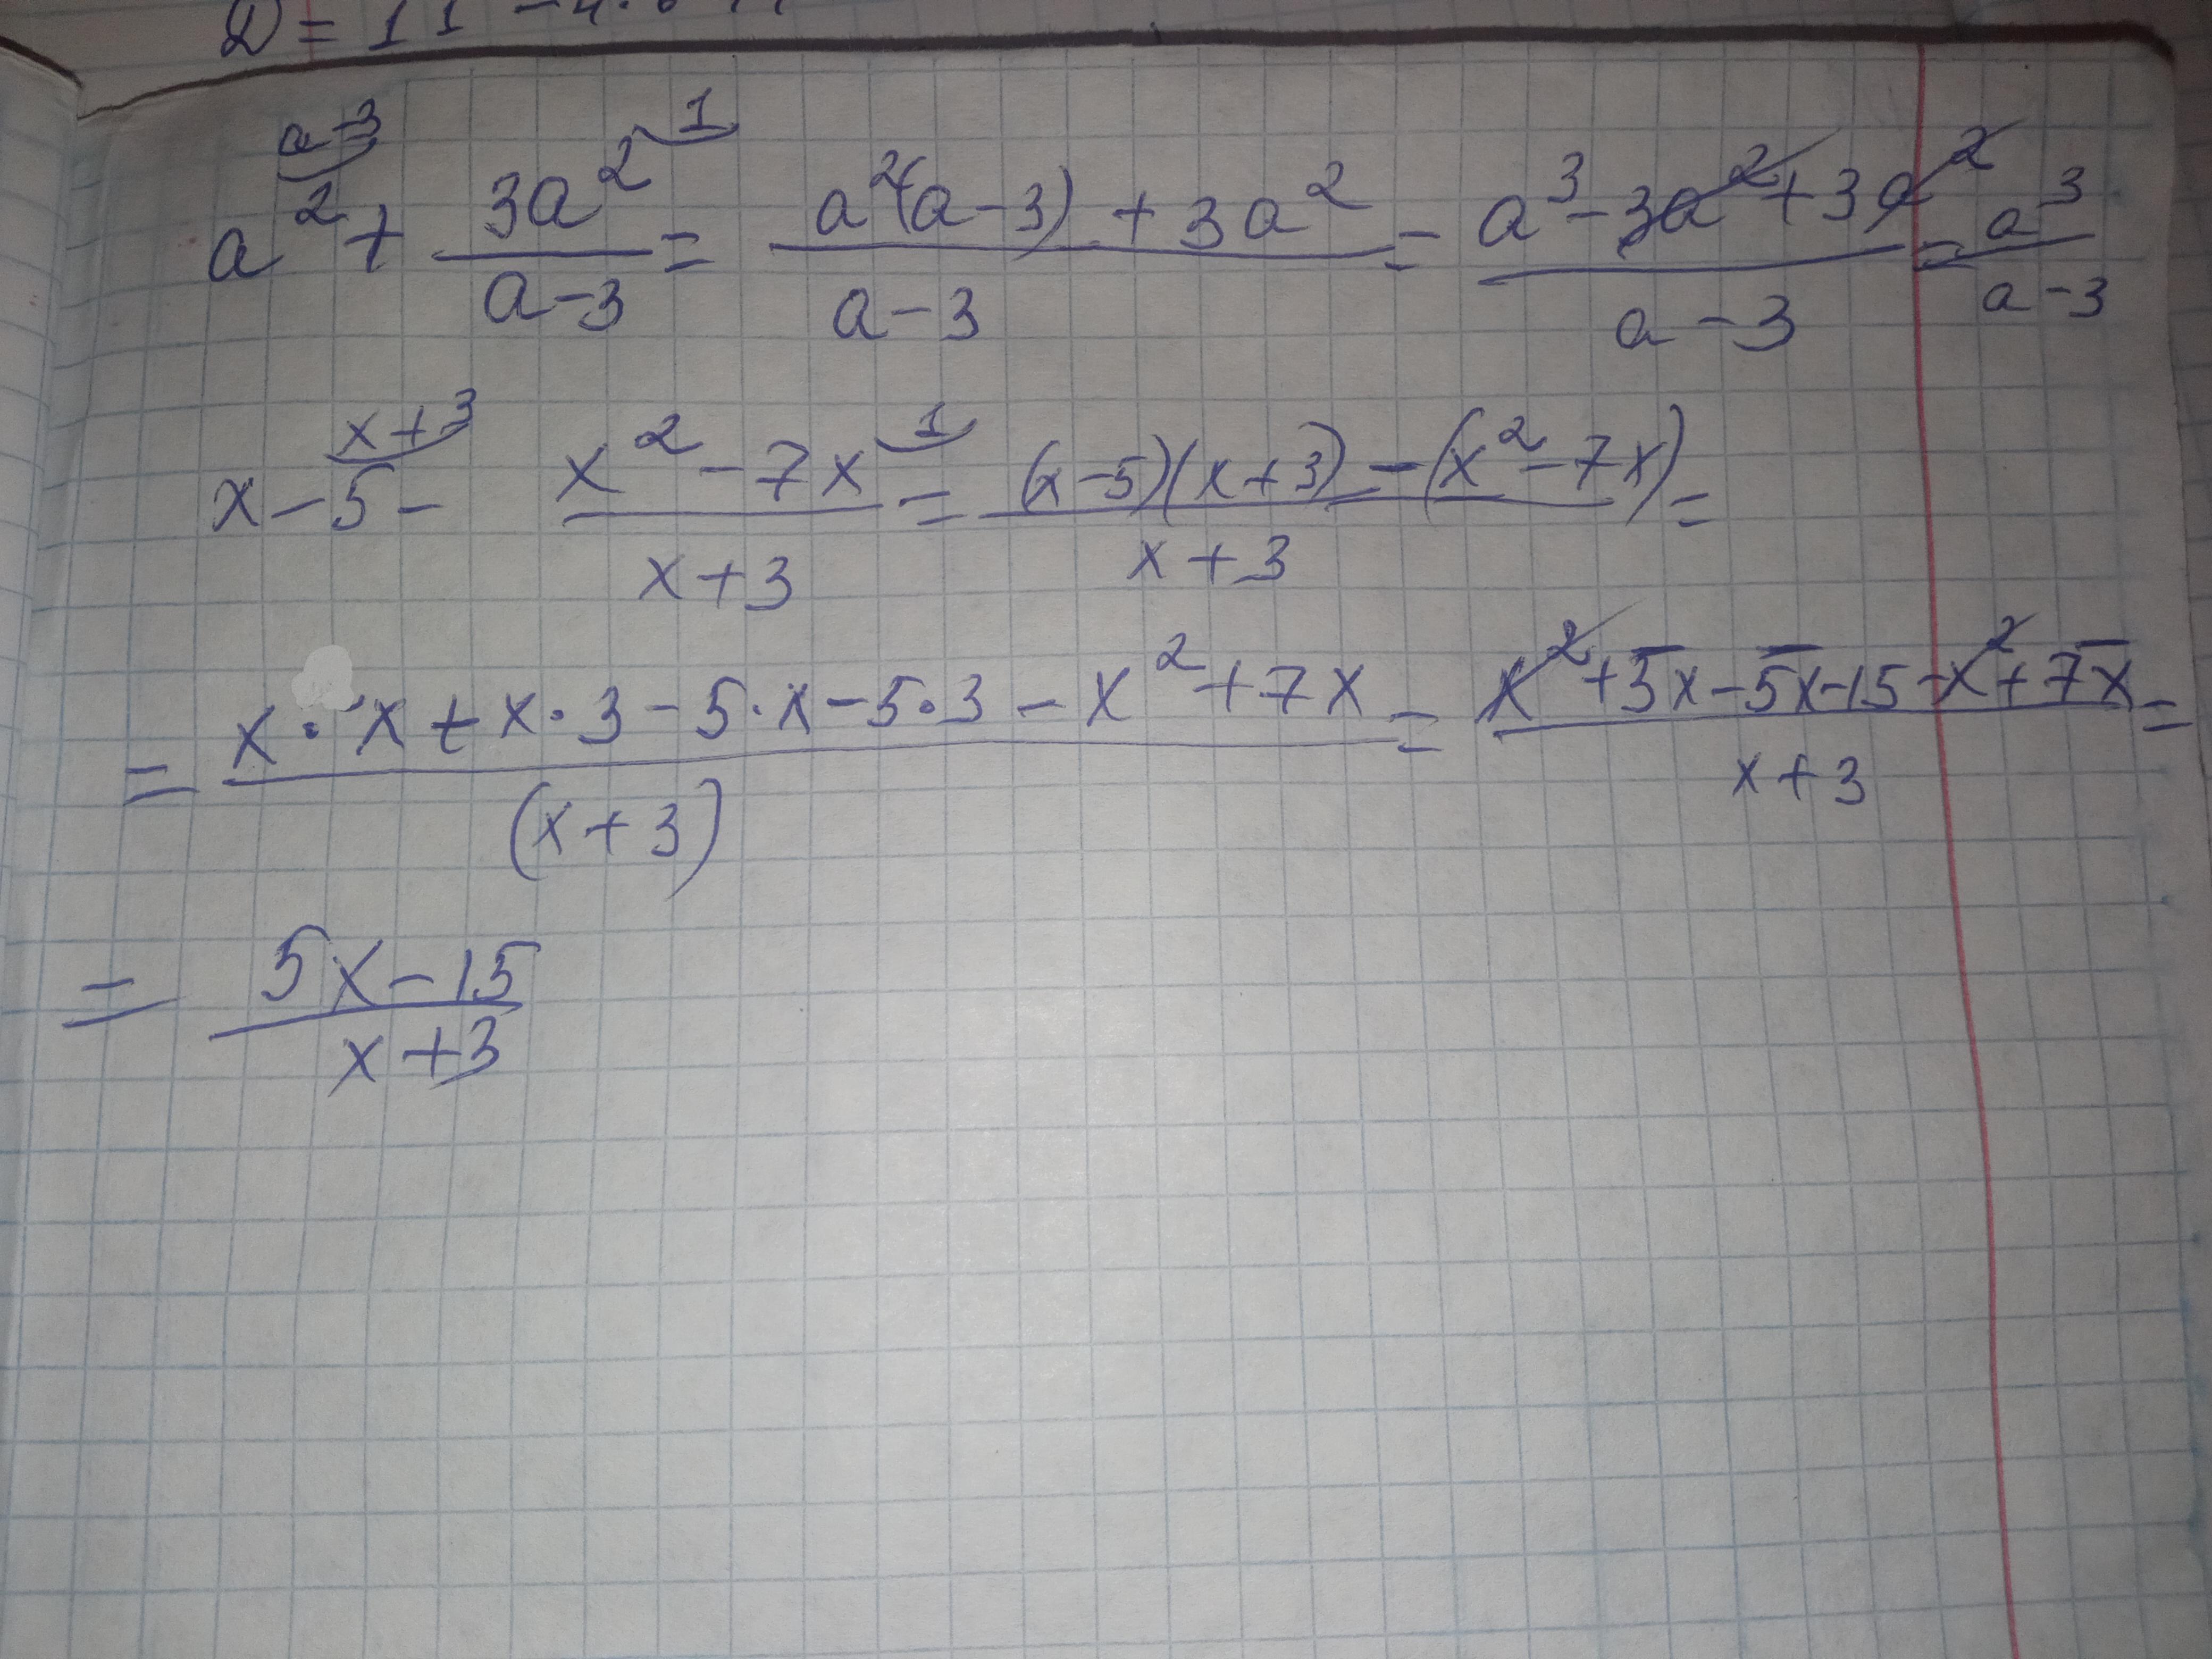 D = 11 - 4 ·
a² + 3a²/(a-3) = (a²(a-3) + 3a²)/(a-3) = (a³ - 3a² + 3a²)/(a-3) = a³/(a-3)
x - 5 - (x² - 7x)/(x+3) = ((x-5)(x+3) - (x² - 7x))/(x+3) =
= (x · x + x · 3 - 5 · x - 5 · 3 - x² + 7x)/(x+3) = (x² + 3x - 5x - 15 - x² + 7x)/(x+3) =
= (5x - 15)/(x+3)